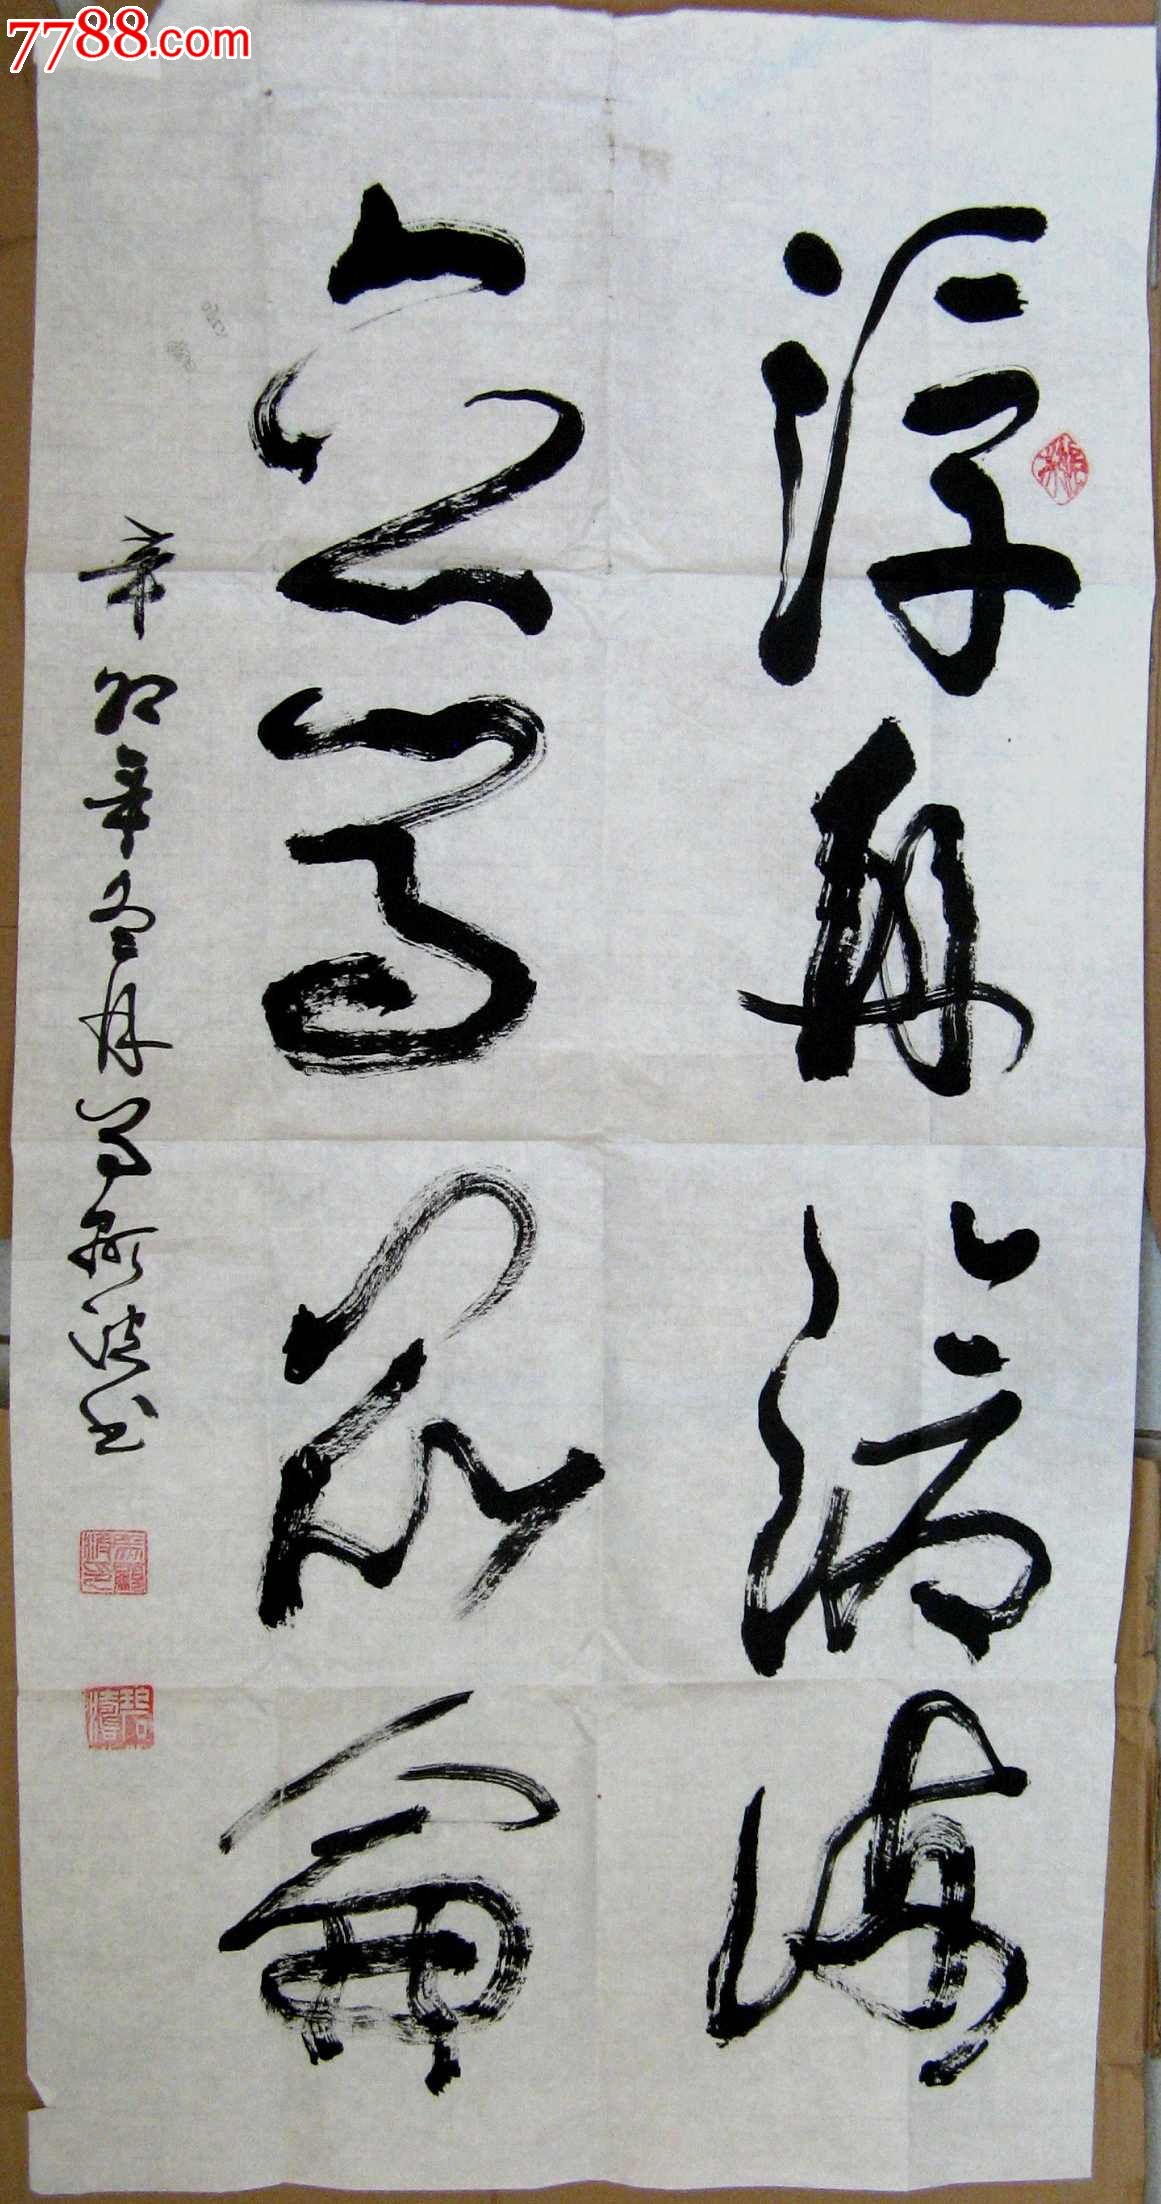 7788.com
浮舟沧海
立马昆侖
辛卯年冬月
书